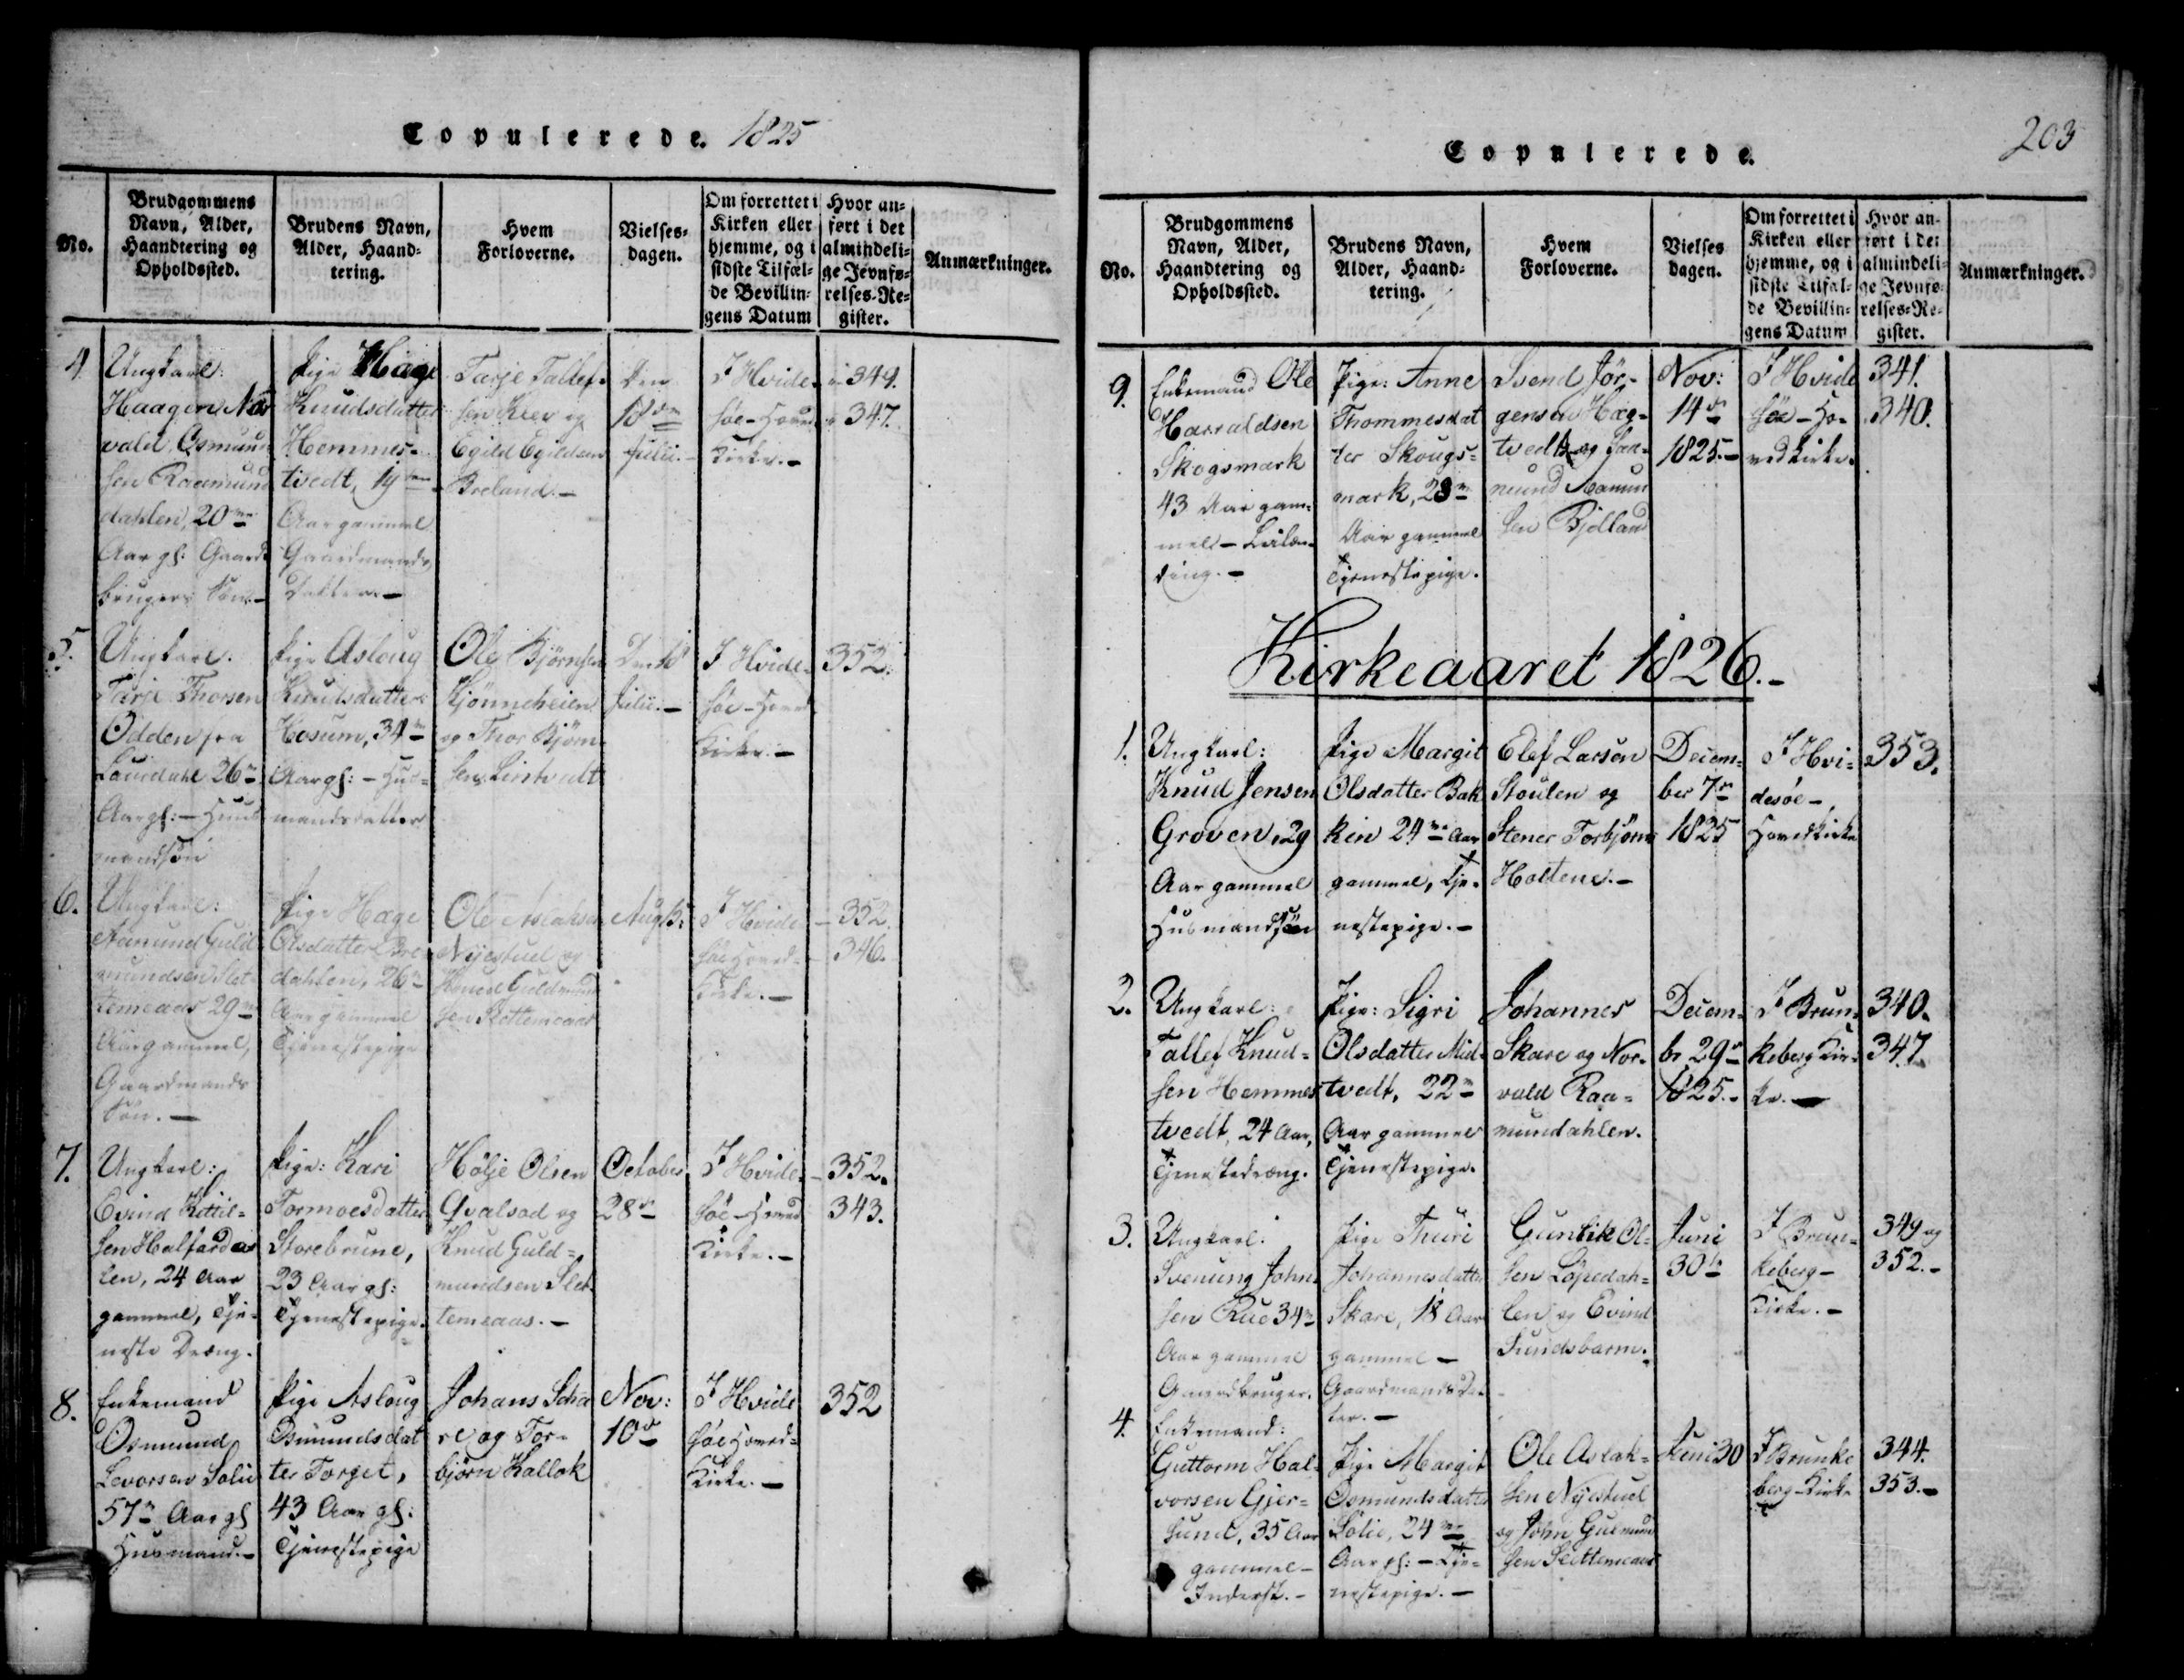 Copulerede. 1825
No.
Brudgommens
Navn, Alder,
Haandtering og
Opholdssted.
Brudens Navn,
Alder, Haand-
tering.
Hvem
Forloverne.
Vielses-
dagen.
Om forrettet i
Kirken eller
hjemme, og i
sidste Tilfæl-
de Bevillin-
gens Datum
Hvor an-
ført i det
almindeli-
ge Jevnfø-
relses-Re-
gister.
Anmærkninger.
4.
Ungkarl:
Haagen Nar
vald Osmund
sen Raamund
dahlen, 20
Aar gl: Gaard
brugers Søn.-
Pige Hæge
Knudsdatter
Hemmes-
tvedt, 19
Aar gammel
Gaardmands
Datter.-
Tarje Tallef-
sen og
Egild Egildsen
Breland.-
Den
18de
Julii.-
I Hvide-
søe-Hoved
Kirke.-
349.
347.
5.
Ungkarl.
Tarje Thorsen
Odden fra
Laurdahl 26
Aar gl:- Huus
mandsøn
Pige Asloug
Knudsdatter
Hosum, 34
Aar gl:- Hus-
mandsdatter
Ole Bjørnsen
Kjønneheien
og Thor Bjørn-
sen Lintvedt
Den 18
Julii.-
I Hvide-
søe-Hoved
Kirke.-
352.
6.
Ungkarl:
Aamund Guld
mundsen Slet-
temeaas 29
Aar gammel,
Gaardmands
Søn.-
Pige Hæge
Olsdatter
dahlen, 26
Aar gammel
Tjenestepige
Ole Aslaksen
Nyestuel og
Knud Guldmund
sen Slettemeaas
Augst:
I Hvide-
søe Hoved-
Kirke.-
352.
346.
7.
Ungkarl:
Evind Kittil-
sen Halfarda
len, 24 Aar
gammel, Tje-
neste Dreng.
Pige: Kari
Tormoesdatter
Storebrune,
23 Aar gl:
Tjenestepige.
Hølje Olsen
Qvalsod og
Knud Guld-
mundsen Slet-
temeaas.-
October
28
I Hvide-
søe-Hoved
Kirke.-
352.
343.
8.
Enkemand
Osmund
Levorsen Solie
57 Aar gl
Husmand.-
Pige Asloug
Osmundsdat
ter Torget,
43 Aar gl:
Tjenestepige
Johans Scha
re og Tor-
bjørn Kallok
Nov:
10
I Hvide
søe Hoved-
Kirke.-
352
203
Copulerede.
No.
Brudgommens
Navn, Alder,
Haandtering og
Opholdssted.
Brudens Navn,
Alder, Haand-
tering.
Hvem
Forloverne.
Vielses
dagen.
Om forrettet i
Kirken eller
hjemme, og i
sidste Tilfæl-
de Bevillin-
gens Datum
Hvor an-
ført i det
almindeli-
ge Jevnfø-
relses-Re-
gister.
Anmærkninger.
9.
Enkemand Ole
Harraldsen
Skogsmark
43 Aar gam-
mel - Leilæn-
ding.-
Pige: Anne
Thommesdat
ter Skougs-
mark, 28
Aar gammel
Tjenestepige.
Svend Jør-
gensen Hæg-
tvedt og Jaa-
mund Aamun
sen Bjelland
Nov:
14
1825.-
I Hvide
søe-Ho-
vedkirke.
341.
340.
Kirkeaaret 1826.-
1.
Ungkarl:
Knud Jensen
Groven, 29
Aar gammel
Husmandsøn
Pige Margit
Olsdatter Bak
ken 24 Aar
gammel, Tje-
nestepige.-
Elef Larsen
Stoulen og
Stener Torbjørns
Holtene.-
Decem-
ber 7
1825
I Hvi-
desøe-
Hovedkirke
353.
2.
Ungkarl:
Tallef Knud-
sen Hemmes
tvedt, 24 Aar,
Tjenestedreng.
Pige: Sigri
Olsdatter Mid-
tvedt, 22
Aar gammel
Tjenestepige.
Johannes
Skare og Nor-
vald Raa-
mundahlen.
Decem-
br 29
1825.-
I Brun-
keberg Kir-
ke.-
340.
347.
3.
Ungkarl:
Svenung John-
sen Rue 34
Aar gammel
Gaardbruger.
Pige Thuri
Johannesdatter
Skare, 18 Aar
gammel -
Gaardmandsdat
ter.-
Guntik Ol-
sen Løpedah-
len og Evind
Sundsbarm.
Juni
30
I Brun-
keberg-
Kirke.-
349 og
352.-
4.
Enkemand:
Guttorm Hal-
vorsen Gjer-
sund, 35 Aar
gammel-
Inderst.-
Pige Margit
Osmundsdatter
Solie, 24
Aar gl:- Tje-
nestepige.-
Ole Aslak-
sen Nyestuel
og John Gulmund
sen Slettemeaas
Juni 30
I Brunke
berg-Kirke
344.
353.-